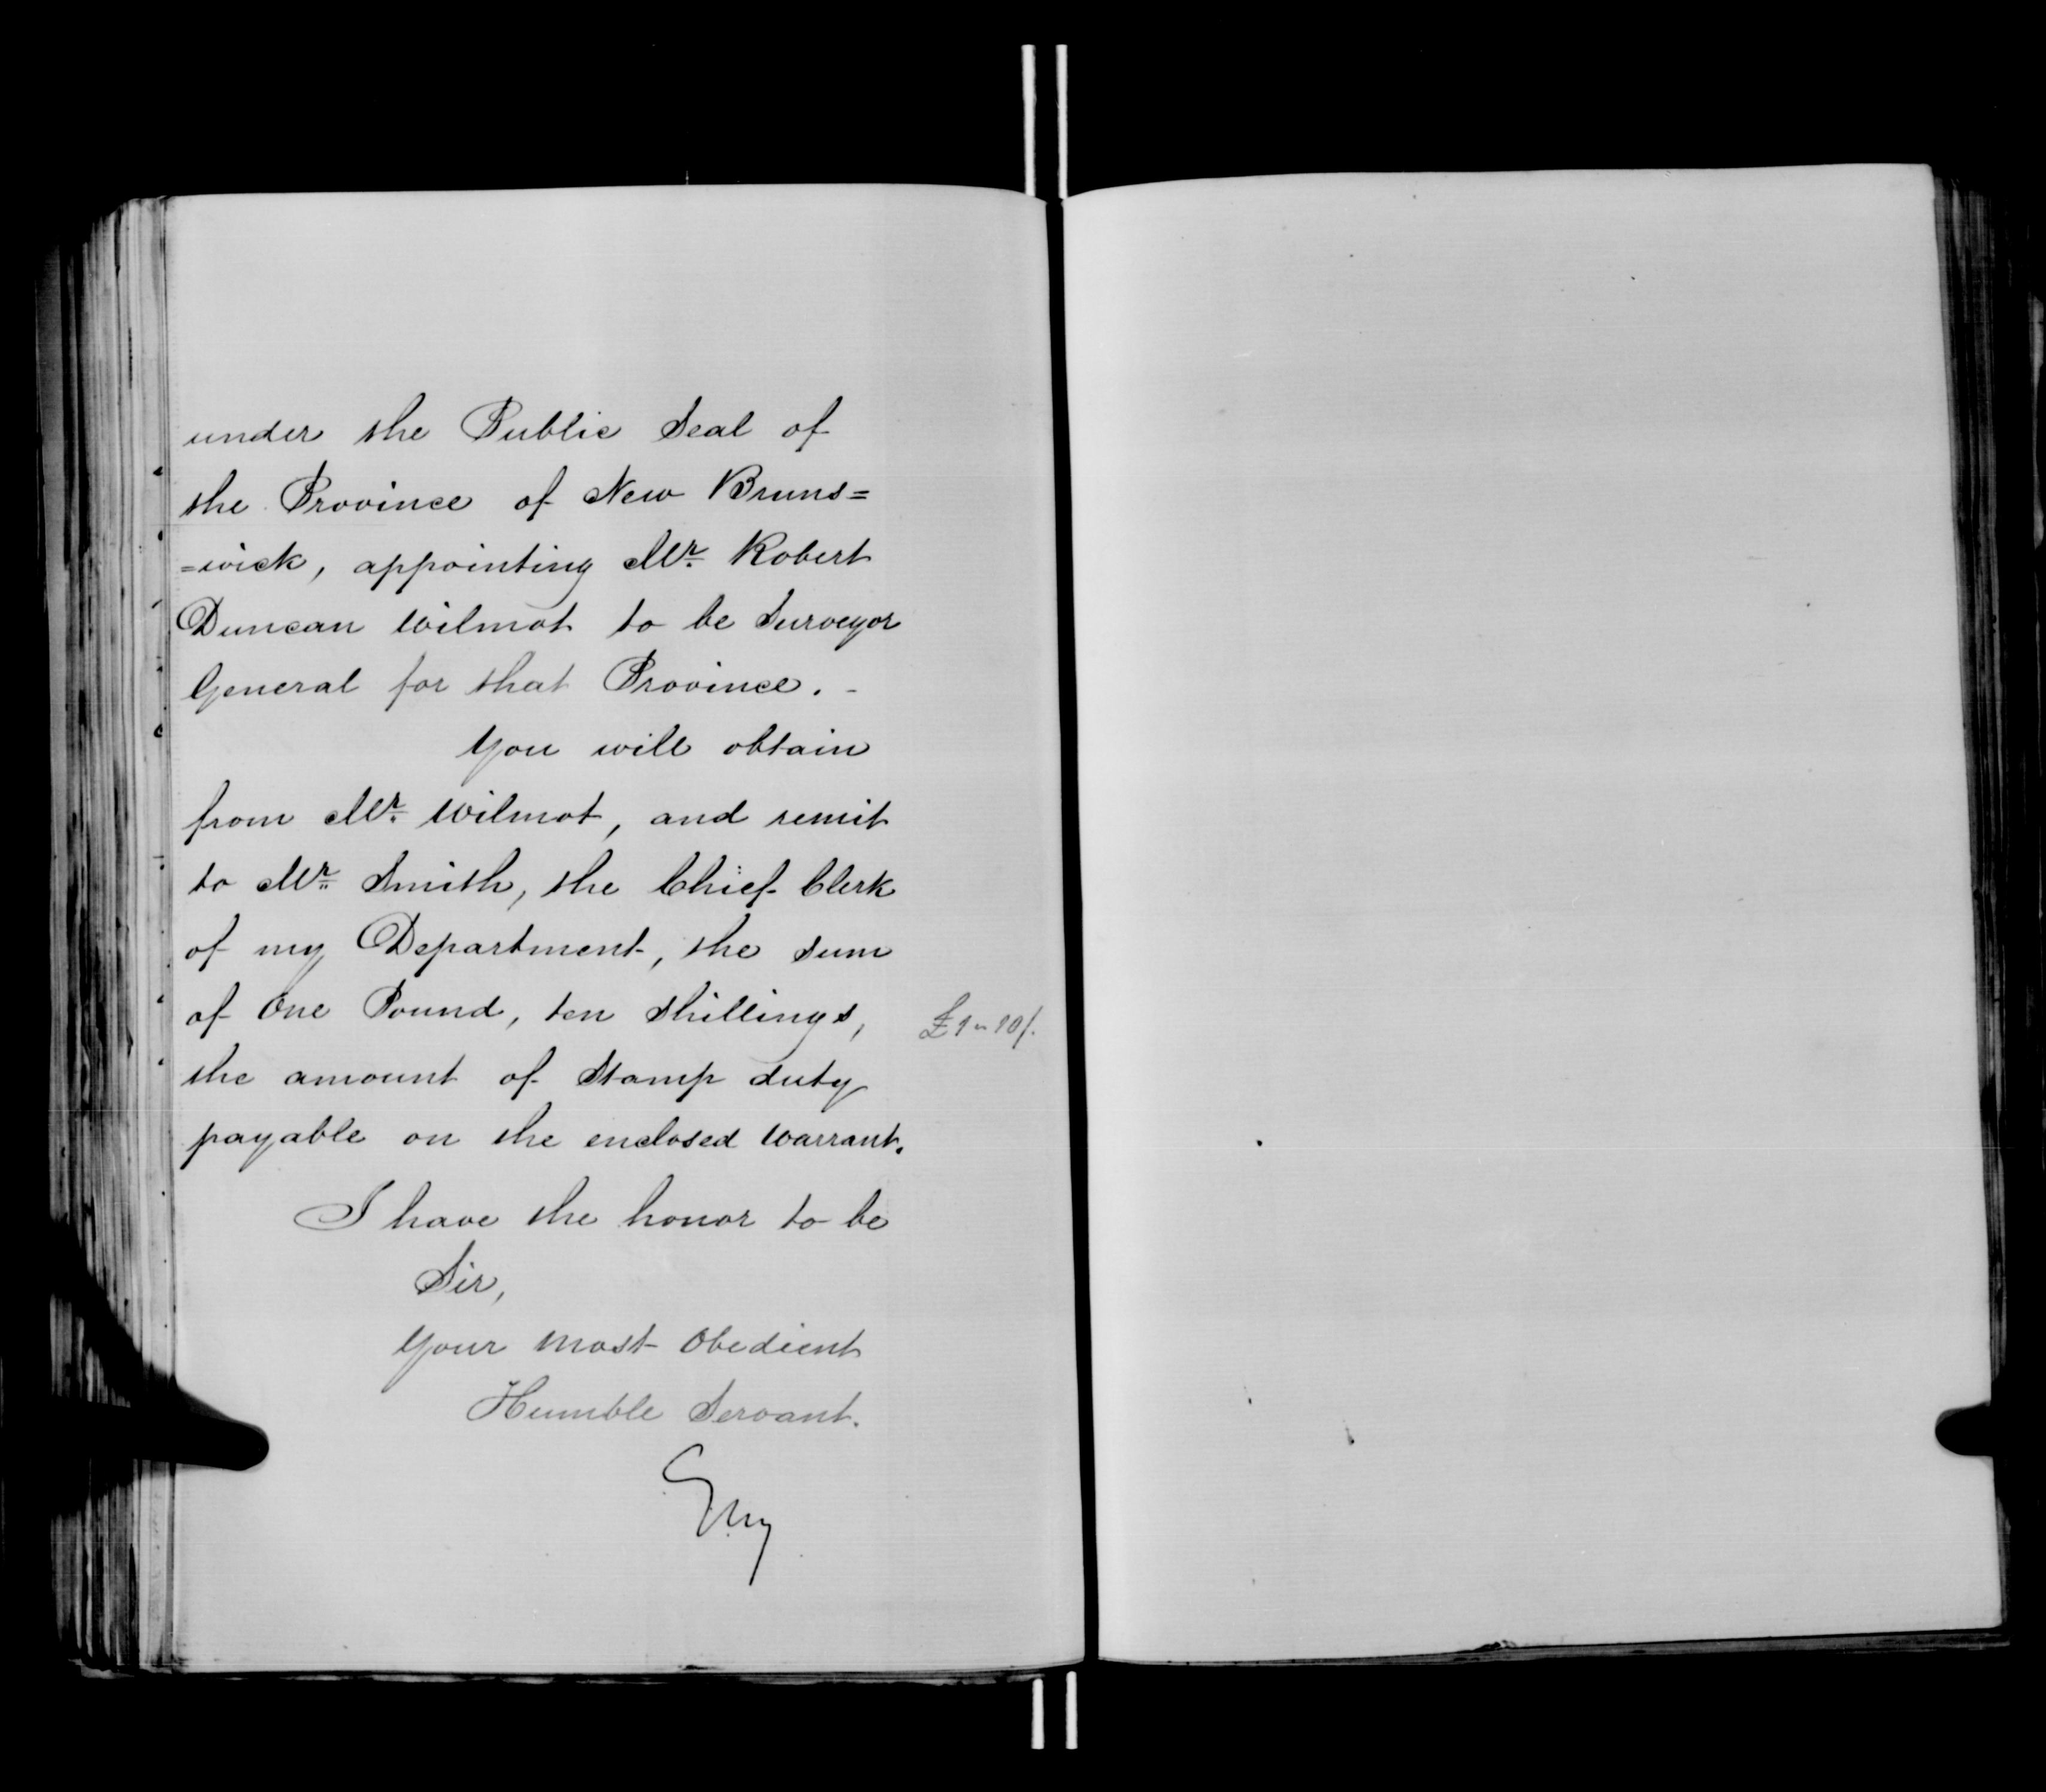 under the Public Seal of
the Province of New Bruns=
=wick, appointing Mr. Robert
Duncan Wilmot to be Surveyor
General for that Province. -
You will obtain
from Mr. Wilmot, and remit
to Mr. Smith, the Chief Clerk
of my Department, the sum
of One Pound, ten shillings,
£1 " 10/.
the amount of Stamp duty
payable on the enclosed Warrant.
I have the honor to be
Sir,
Your most Obedient
Humble Servant.